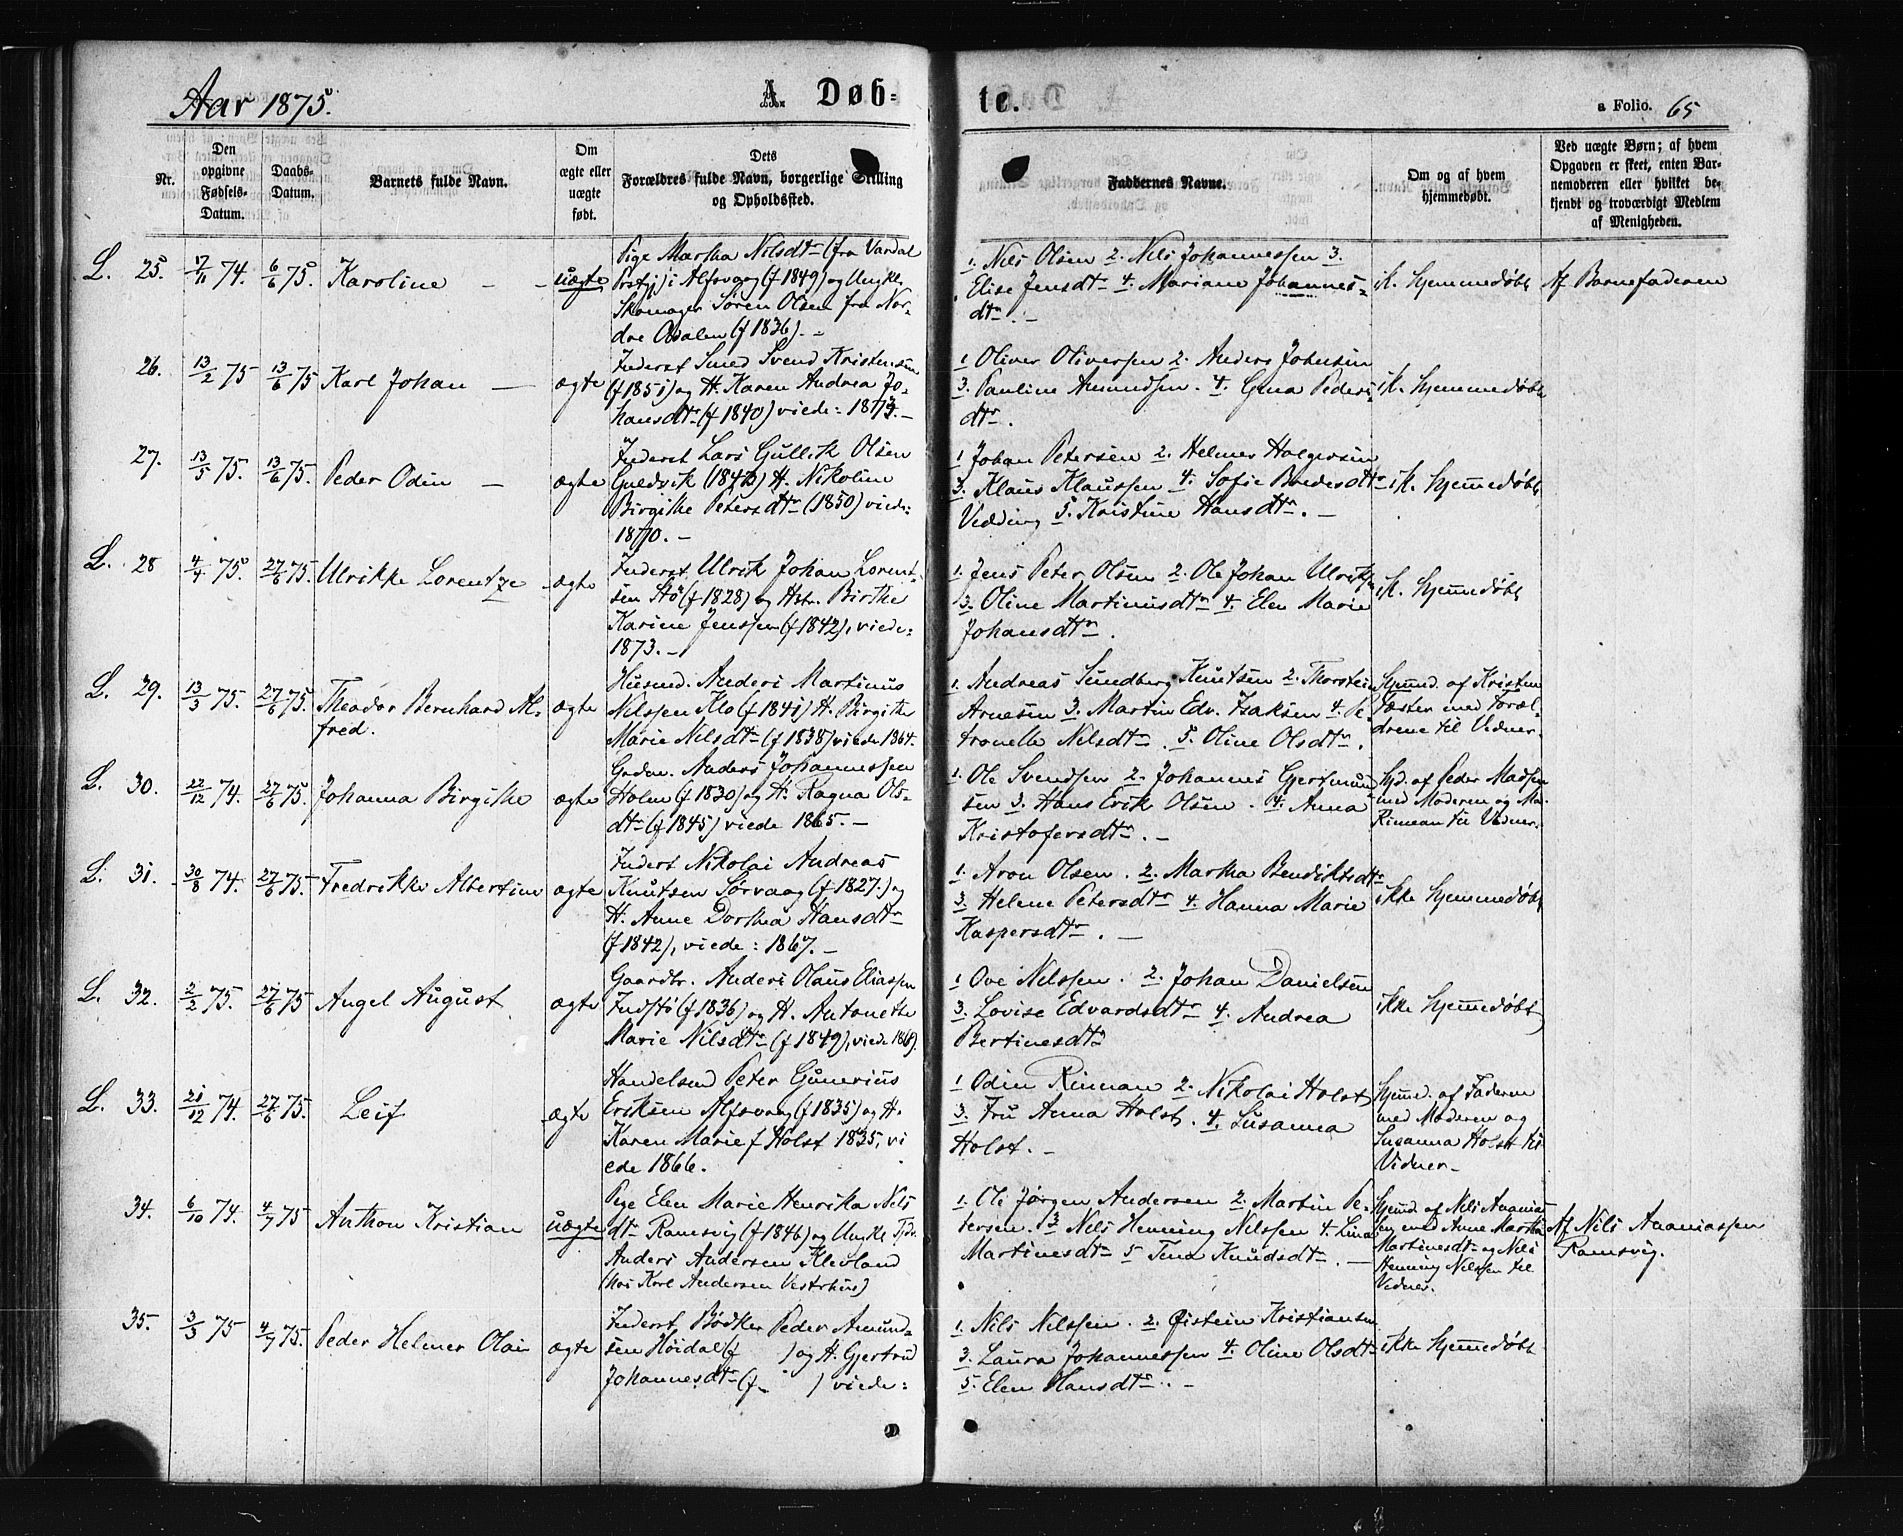 Aar 1875.
A. Døb-
te.
a Folio. 65
Nr.
Den opgivne Fødsels-Datum.
Daabs-Datum.
Barnets fulde Navn.
Om ægte eller uægte født.
Dets Forældres fulde Navn, borgerlige Stilling og Opholdssted.
Faddernes Navne.
Om og af hvem hjemmedøbt.
Ved uægte Børn; af hvem Opgaven er skeet, enten Barnemoderen eller hvilket bekjendt og troværdigt Medlem af Menigheden.
L. 25. 17/11 74. 6/6 75 Karoline — uægte
Pige Martha Nilsdtr (fra Vardal
Prstgj) i Alfsvaag (f 1849) og Ungkl.
Skomager Søren Olsen fra Nor-
dre Odalen (f 1836). –
1. Nils Olsen 2. Nils Johannessen 3.
Elise Jensdtr 4. Mariane Johannes-
dtr. –
ik. hjemmedøbt
Af Barnefaderen
26. 13/2 75 13/6 75 Karl Johan — ægte
Inderst Smed Svend Kristensen
(f 1851) og H. Karen Andrea Jo-
hansdtr (f 1840) viede: 1873. –
1 Oliver Oliversen 2. Anders Johnsen
3. Pauline Amundsen. 4. Gina Peders-
dtr.
ik. hjemmedøbt
27. 13/5 75. 13/6 75. Peder Odin — ægte
Inderst Lars Gullik Olsen
Guldvik (1843) H. Nikoline
Birgithe Petersdtr (1850) viede:
1870. –
1 Johan Petersen 2. Helmer Holgersen
3. Klaus Klaussen 4. Sofie Bredesdtr
Vedding 5. Kristine Hansdtr. –
ik. hjemmedøbt
L. 28 4/4 75. 27/6 75. Ulrikke Lorentze ægte
Inderst Ulrik Johan Lorent-
sen Stø (f 1828) og Hstr. Birthe
Karine Jenssen (f 1842), viede:
1873. –
1. Jens Peter Olsen 2. Ole Johan Ulriks.
3. Oline Martinusdtr 4. Elen Marie
Johansdtr.
ik. hjemmedøbt
L. 29. 13/3 75. 27/6 75. Theodor Bernhard Al-
fred. ægte
Husmd. Anders Martinus
Nilssen Klo (f 1841) H. Birgithe
Marie Nilsdtr (f 1838) viede 1864.
1. Andreas Sundberg Knutsen 2. Thorstein
Arnesen 3. Martin Edv. Isaksen 4. Pe-
tronelle Nilsdtr. 5. Oline Olsdtr.
Hjemmd. af Kristen
Fæster med Foræl-
drene til Vidner.
L. 30. 22/12 74. 27/6 75. Johanna Birgithe ægte
Grdm. Anders Johannessen
Holm (f 1830) og H. Ragna Ols-
dtr (f 1845) viede 1865. –
1. Ole Svendsen 2. Johannes Gjertmund-
sen 3. Hans Erik Olsen. 4. Anna
Kristofersdtr. –
Hjd. af Peder Madsen
med Moderen og
til Vidner.
L. 31. 30/8 74. 27/6 75. Fredrikke Albertine ægte
Inderst Nikolai Andreas
Knutsen Sørvaag (f 1827.) og
H. Anne Dorthea Hansdtr
(f 1842), viede: 1867. –
1. Aron Olsen. 2. Martha Bendiktsdtr
3. Helene Petersdtr 4. Hanna Marie
Kaspersdtr. –
ikke hjemmedøbt
L. 32. 2/2 75. 27/6 75 Angel August. ægte
Gaardbr. Anders Olaus Eliassen
Indstø (f 1836) og H. Antonethe
Marie Nilsdtr (f 1849), viede 1869.
1 Ove Nilssen. 2. Johan Danielsen
3. Lovise Edvardsdtr 4. Andrea
Bertinesdtr
ikke hjemmedøbt
L. 33. 21/12 74. 27/6 75. Leif ægte
Handelsmd Peter Gunerius
Eriksen Alfsvaag (f 1835) og H.
Karen Marie f Holst 1835, vi
ede 1866.
1 Odin Rinnan 2. Nikolai Holst
3. Fru Anna Holst. 4. Susanna
Holst. –
Hjemmd. af Faderen
med Moderen og
Susanna Holst til
Vidner –
34. 6/10 74. 4/7 75 Anthon Kristian uægte
Pige Elen Marie Henrika Nils
dtr Ramsvig (f 1846) og Ungkl.
Anders Andersen Klevland
(hos Karl Andersen Vesterhus)
1. Ole Jørgen Andersen 2. Martin Pe-
tersen. 3 Nils Henning Nilssen 4. Lina
Martinesdtr 5 Tina Knudsdtr. –
Hjemmd af Nils Ananias-
sen med Anne Martha
Martinesdtr og Nils
Henning Nilssen til
Vidner.
Af Nils Ananiassen
Ramsvig.
35. 3/3 75 4/7 75. Peder Helmer Olai ægte
Inderst Bødker Peder Amund-
sen Høidal (f ) og H. Gjertrud
Johannesdtr (f ) viede:
1. Nils Nilssen. 2. Øistein Kristiansen
3. Laura Johannessen 4. Oline Olsdtr
5. Elen Hansdtr. –
ikke hjemmedøbt